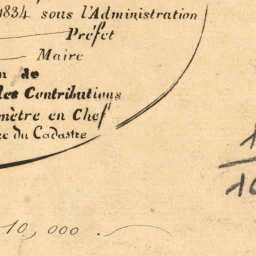 1834 sous l'Administration
Préfet
Maire
de
des Contributions
en Chef
du Cadastre
1
10,000.